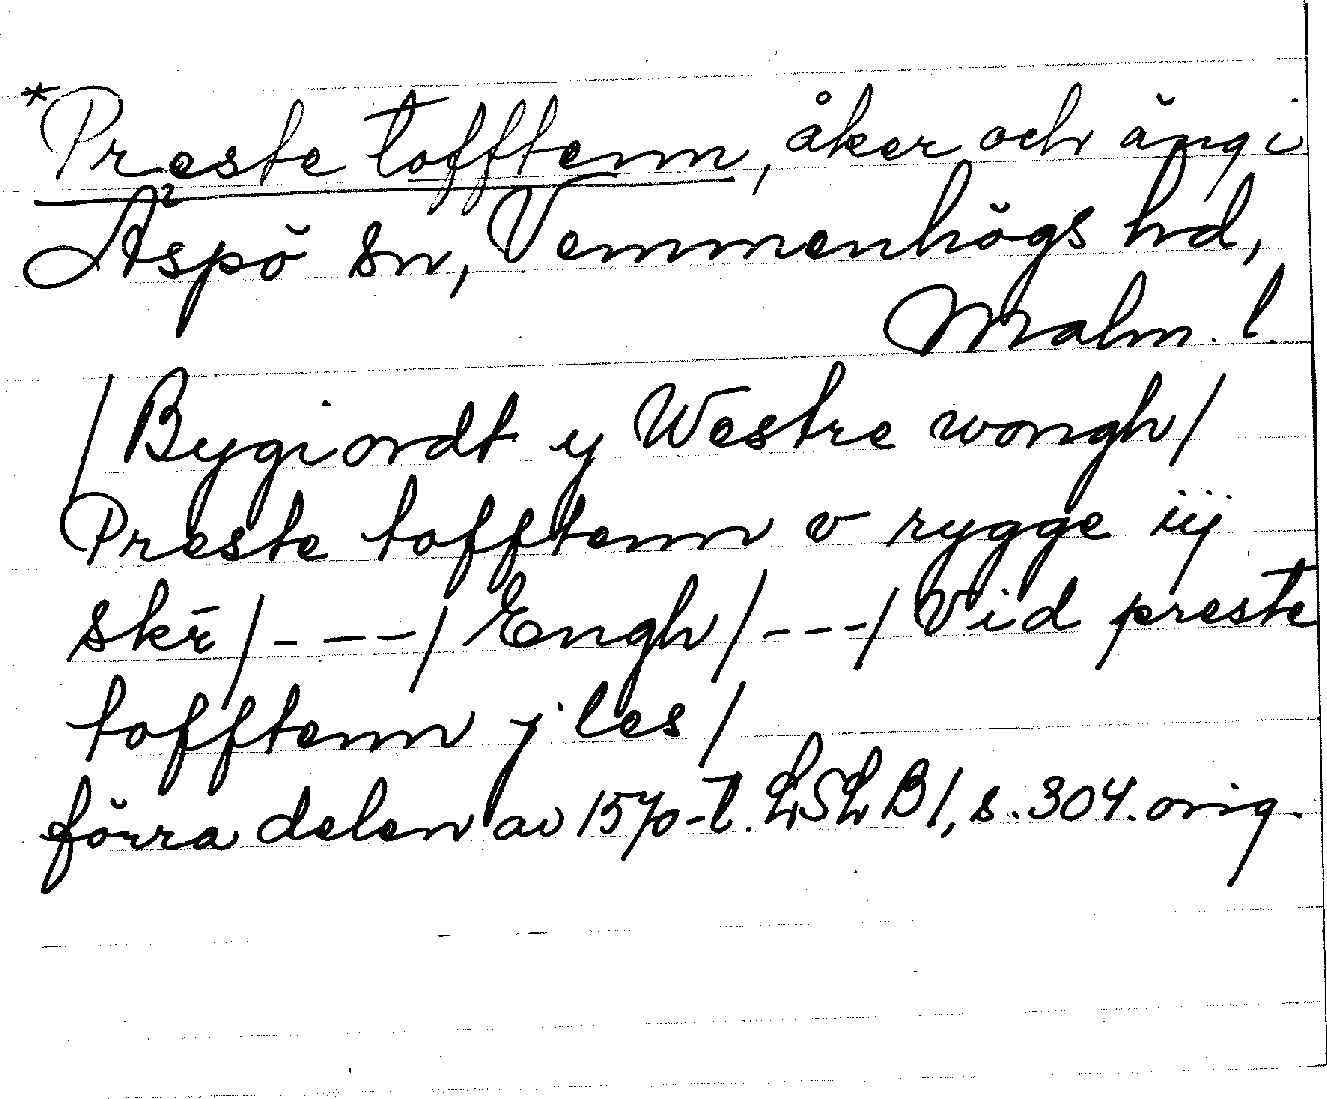 *Preste tofftenn, åker och äng i
Äspö sn, Vemmenhögs hd,
Malm. l.
/Bygiordt y Westre wongh/
Preste tofftenn v rygge iij
skr̄ /- - - -/ Engh /- - - -/ Vid preste
tofftenn j les /
förra delen av 1570-t. LSLB1, s. 304. orig.